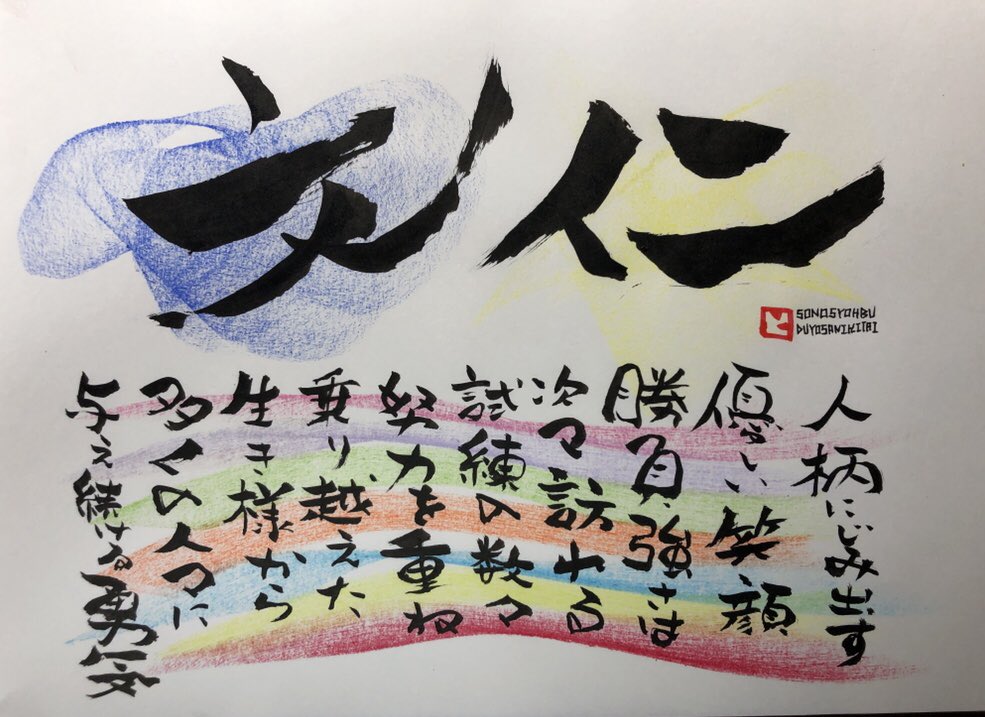 文仁
SONOSYOHBU
DUYOSANIKITAI
人柄にじみ出す
優しい笑顔
勝負強さは
次々訪れる
試練の数々
努力を重ね
乗り越えた
生き様から
多くの人々に
与え続ける勇気